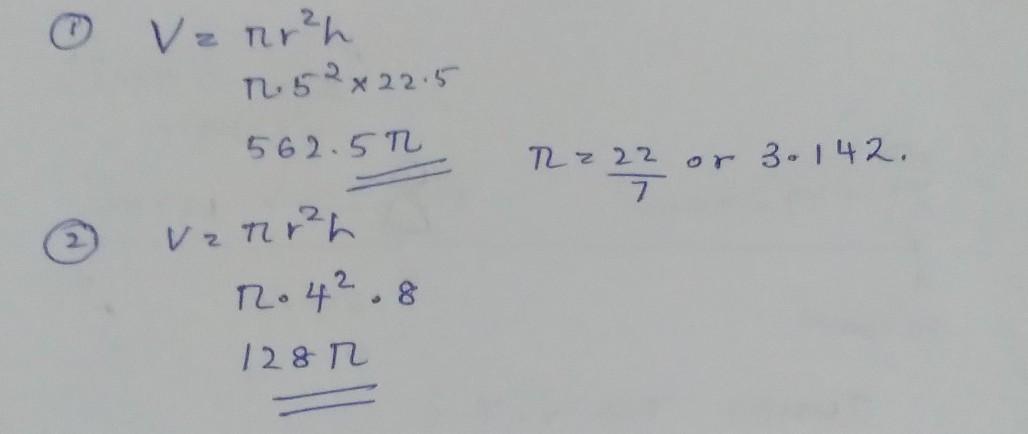 ① V = πr²h
π.5² × 22.5
562.5π π = 22/7 or 3.142.
② V = πr²h
π.4².8
128π